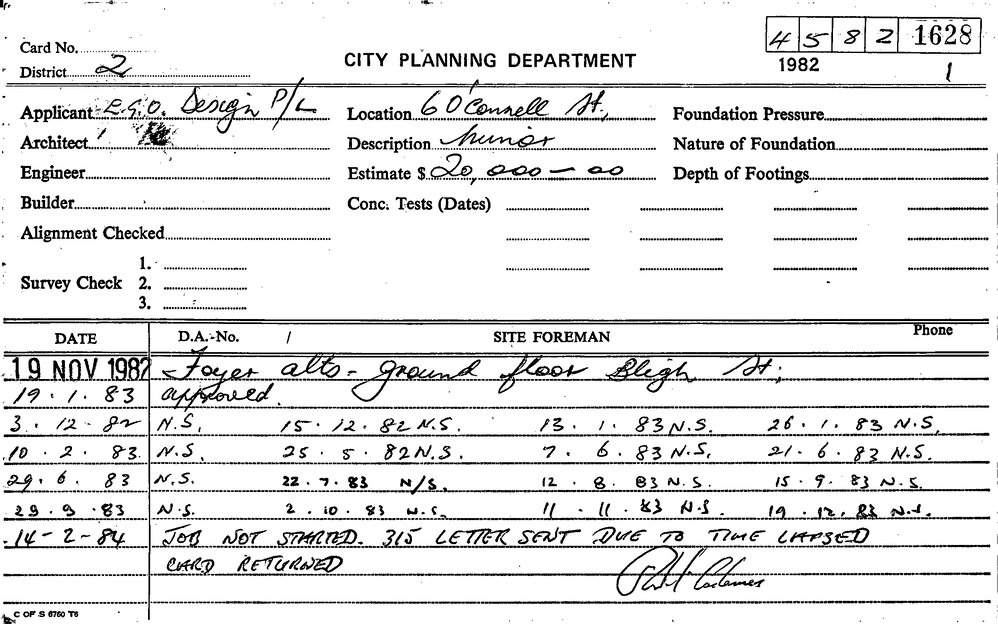 4 5 8 2 1628
Card No.
CITY PLANNING DEPARTMENT
1982
1
District 2
Applicant E.G.O. Design P/L
Location 6 O'Connell St,
Foundation Pressure
Architect
Description Minor
Nature of Foundation
Engineer
Estimate $ 20,000-00
Depth of Footings
Builder
Conc. Tests (Dates)
Alignment Checked
1.
Survey Check 2.
3.
DATE D.A.-No. / SITE FOREMAN Phone
19 NOV 1982 Foyer alts - ground floor Bligh St;
19.1.83 approved.
3.12.82 N.S, 15.12.82 N.S. 13.1.83 N.S. 26.1.83 N.S,
10.2.83 N.S. 25.5.82 N.S. 7.6.83 N.S, 21.6.83 N.S.
29.6.83 N.S. 22.7.83 N/S. 12.8.83 N.S. 15.9.83 N.S.
29.9.83 N.S. 2.10.83 N.S. 11.11.83 N.S. 19.12.83 N.S.
14-2-84 JOB NOT STARTED. 315 LETTER SENT DUE TO TIME LAPSED
CARD RETURNED
C OF S 6750 T6